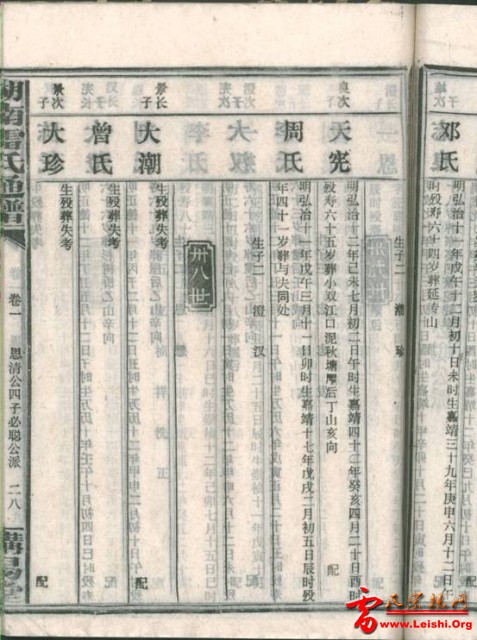 邓氏
明弘治十一年戊午十二月初十日未时生嘉靖三十九年庚申六月十二日午
时殁寿六十四岁葬延寿山
生子二 潮 珍
良次子
天宪
明弘治十二年己未七月初二日午时生嘉靖四十二年癸亥四月二十日酉时
殁寿六十五岁葬小双江口泥秋塘
后丁山亥向
配
周氏
明弘治十一年戊午三月十一日卯时生嘉靖十七年戊戌二月初五日辰时殁
年四十一岁葬与夫同处
生子二 澄 汉
卅八世
景长子
大潮
生殁葬失考
配
曾氏
生殁葬失考
景次子
大珍
生殁葬失考
配
湖南雷氏通譜
卷一
思清公四子必聪公派
二八
講易堂
www.Leishi.Org